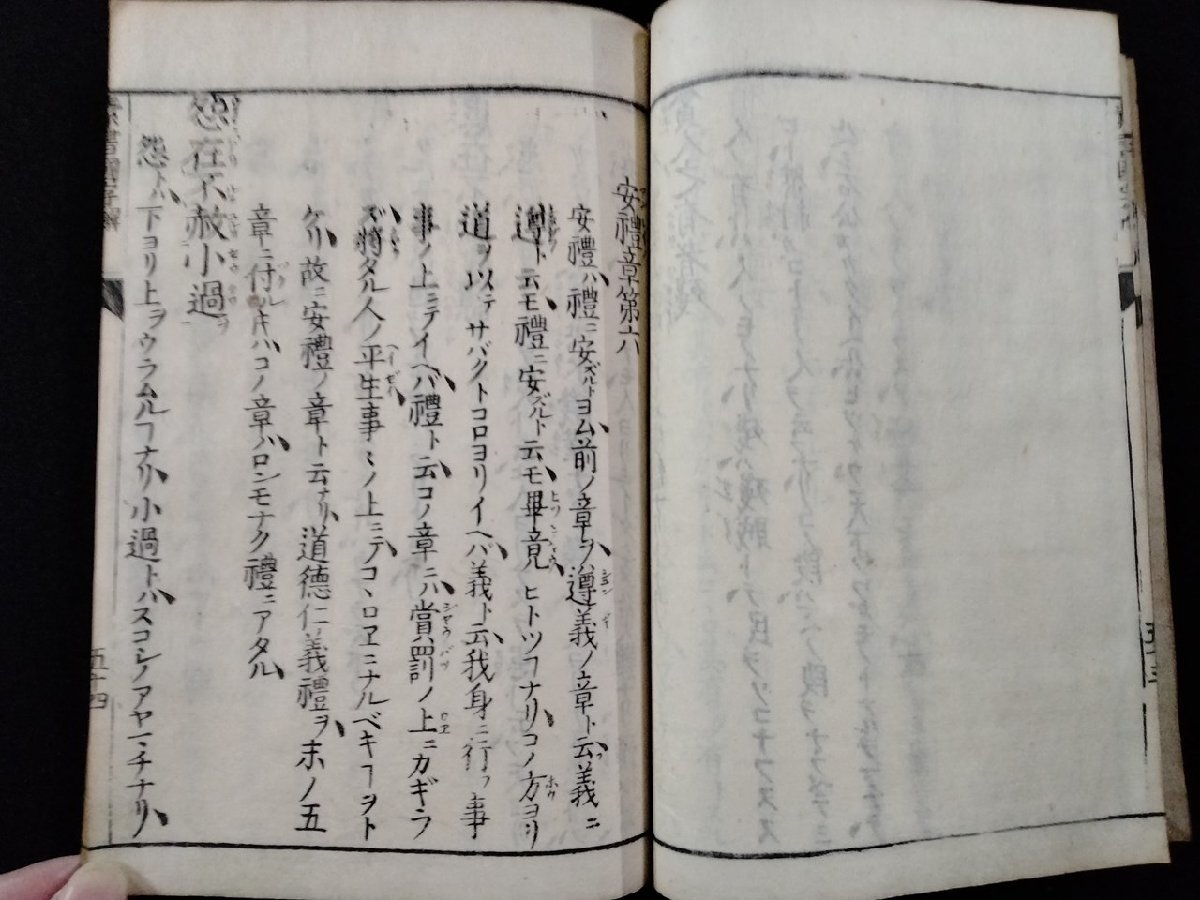 安禮章第六
安禮ハ禮ニ安ズルトヨム前ノ章ヲハ遵義ノ章ト云義ニ
遵ト云モ禮ニ安ズルト云モ畢竟ヒトツヿナリコノ方ヨリ
道ヲ以テサバクトコロヨリイヘバ義ト云我身ニ行フ事
事ノ上ニテイヘバ禮ト云コノ章ニハ賞罰ノ上ニカギラ
ズ将タル人ノ平生事〻ノ上ニテコヽロヱニナルベキヿヲト
ケリ故ニ安禮ノ章ト云ナリ道德仁義禮ヲ末ノ五
章ニ付ル𪜈ハコノ章ハロンモナク禮ニアタル
怨在不赦小過
怨トハ下ヨリ上ヲウラムルヿナリ小過トハスコシノアヤマチナリ
五十四